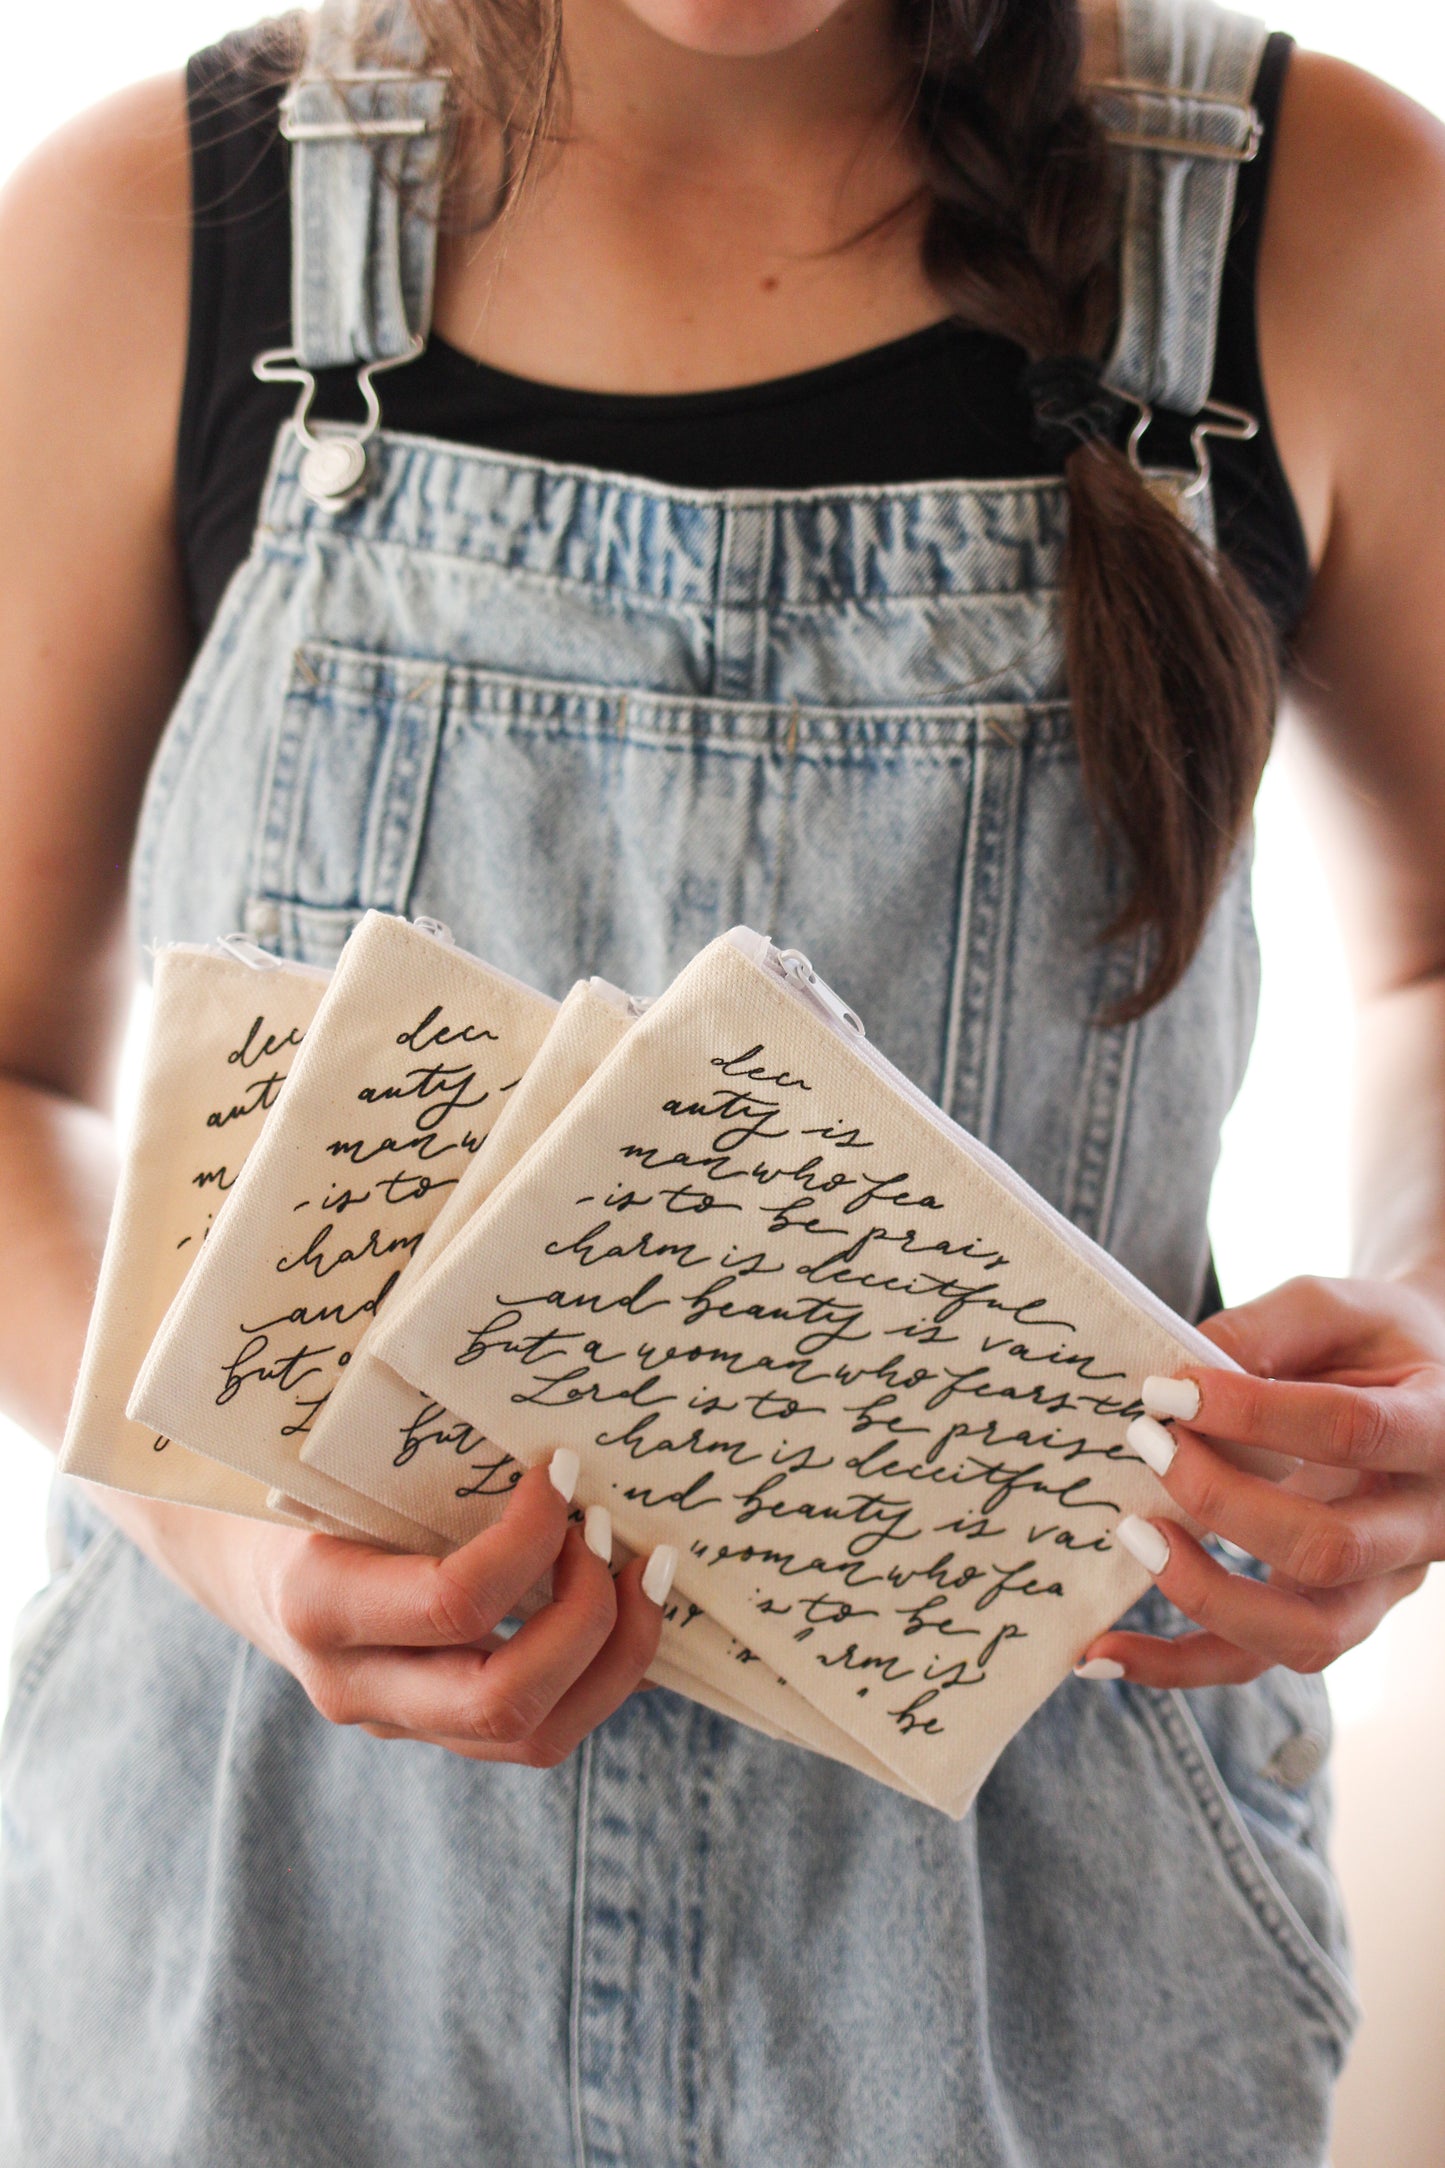 dec
auty
man w
is to
charm
and
but a
L
dec
aut
m
i
but
Lo
dec
auty is
man who fea
is to be prais
charm is deceitful
and beauty is vain
but a woman who fears th
Lord is to be praise
charm is deceitful
nd beauty is vai
woman who fea
is to be p
arm is
be